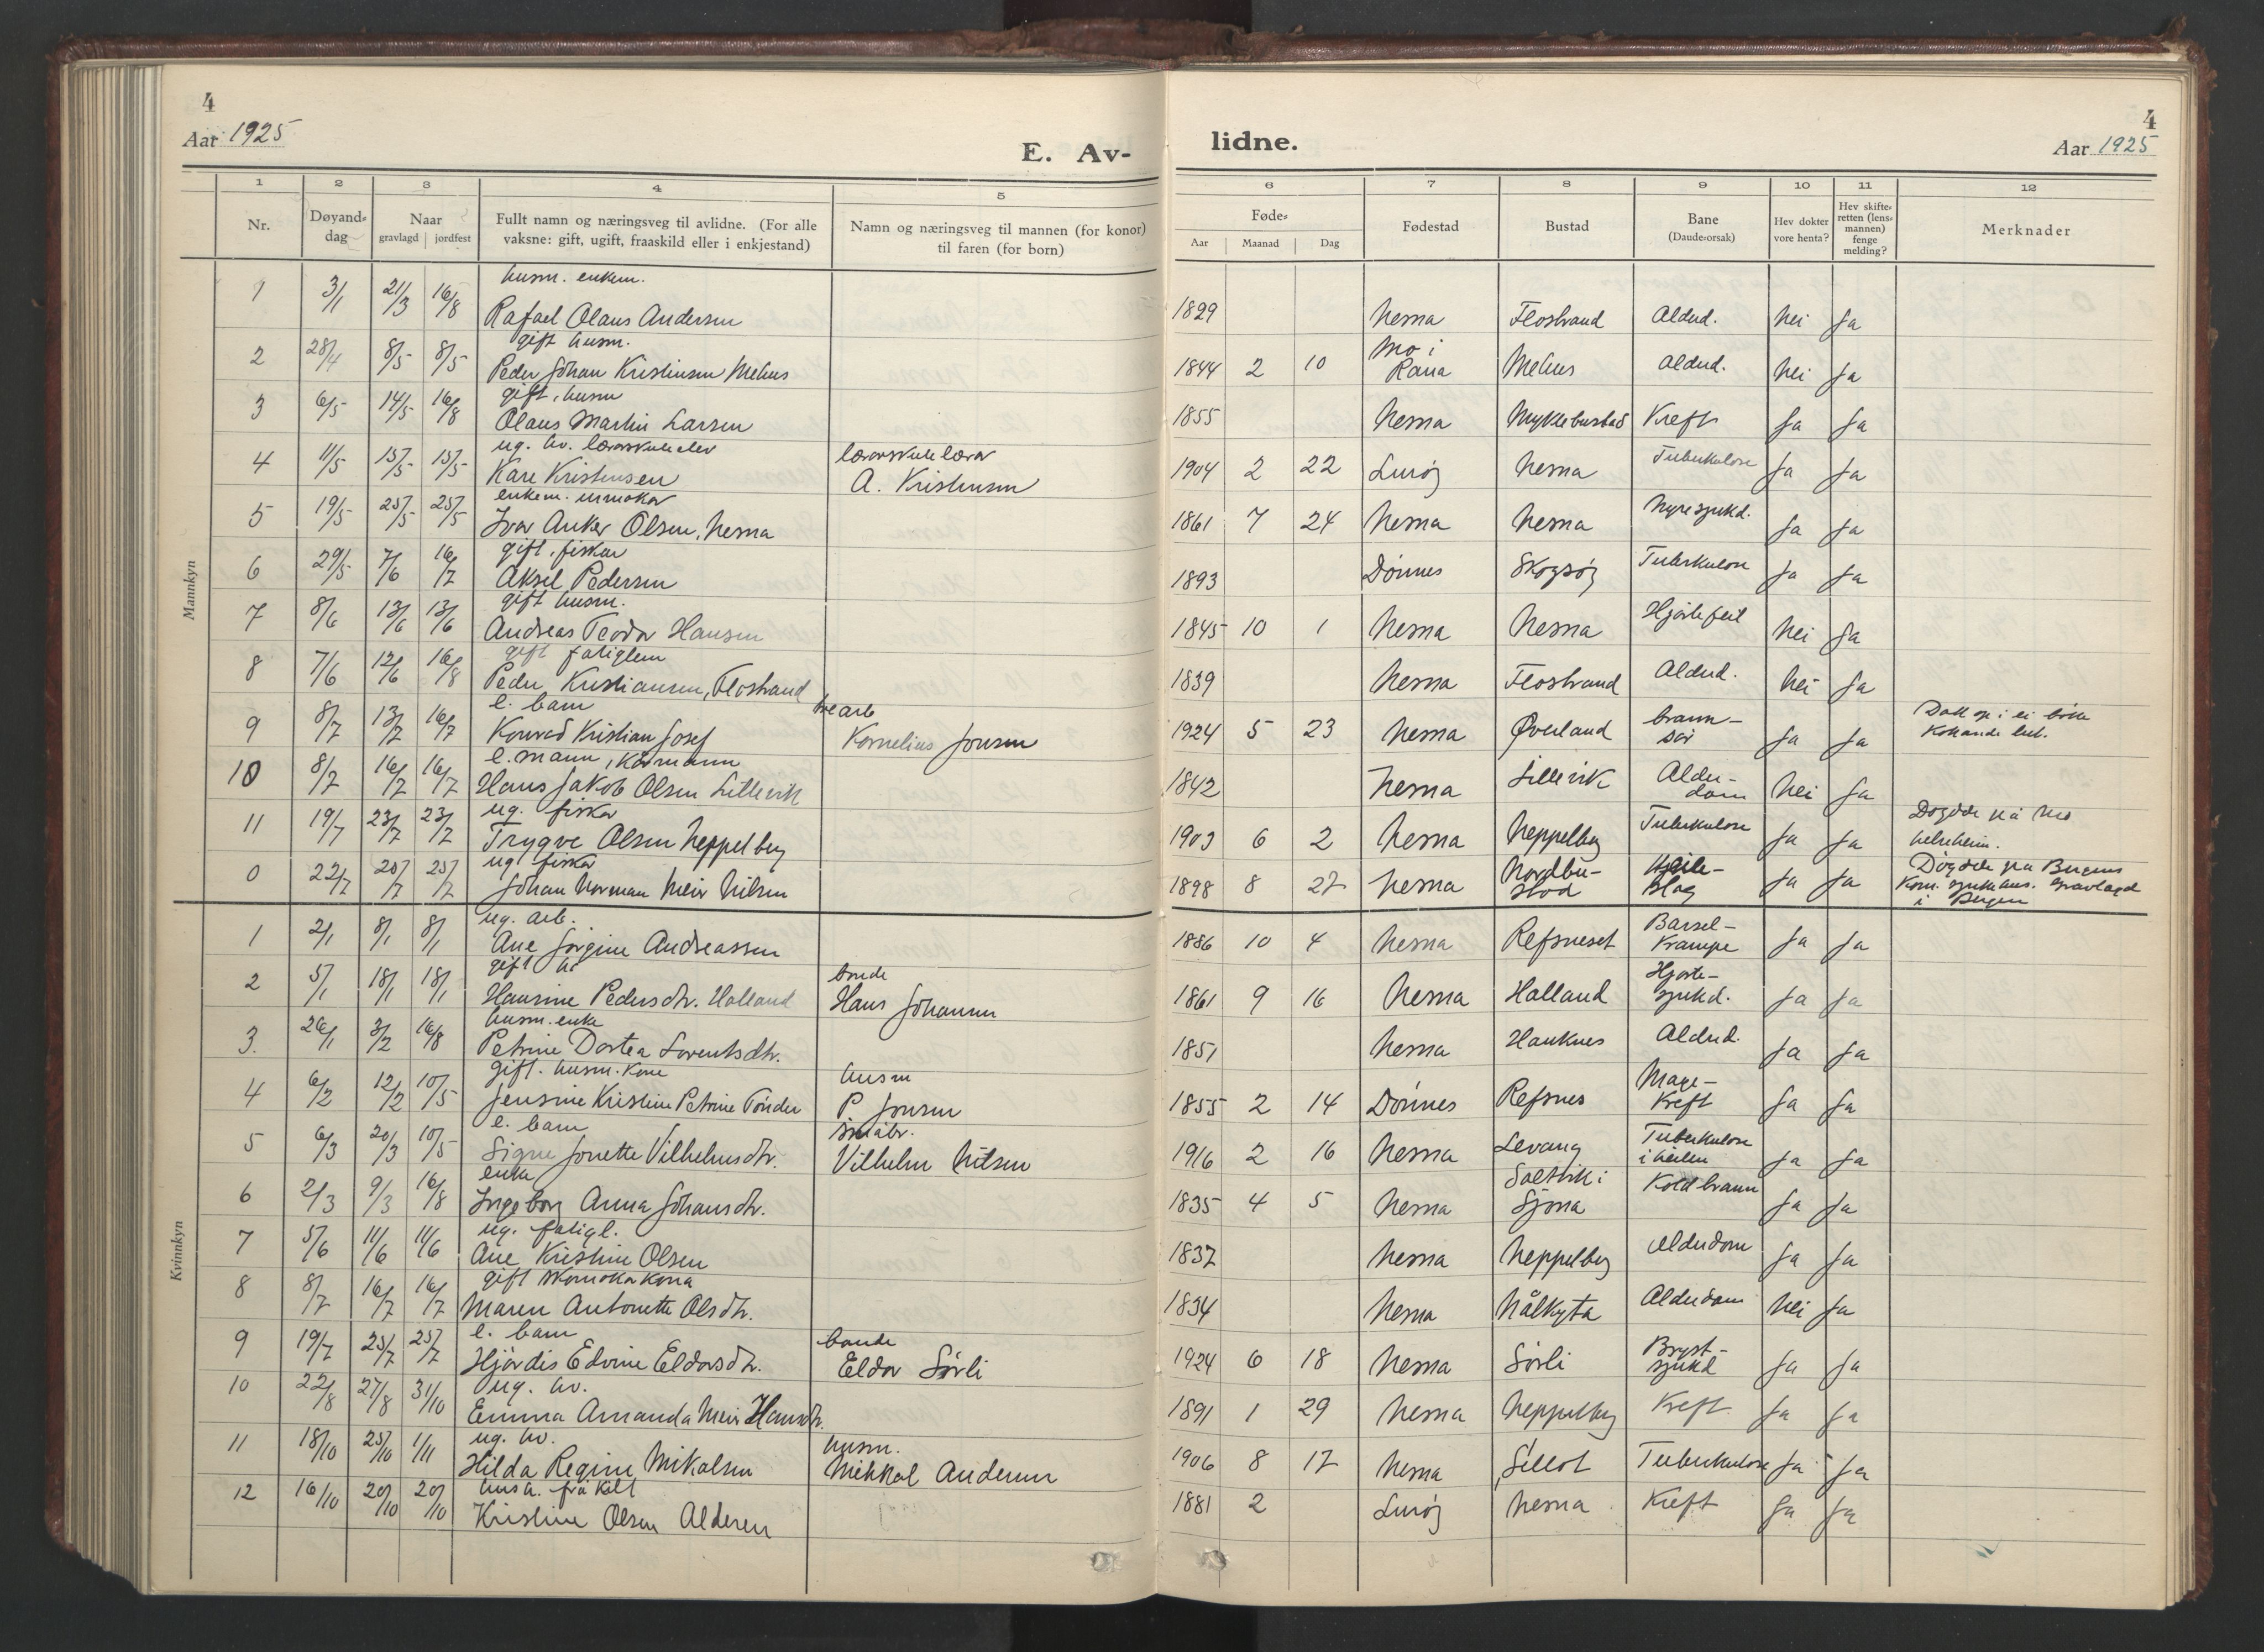 4
Aar 1925
E. Av-
lidne.
4
Aar 1925
1 2 3 4 5 6 7 8 9 10 11 12
Nr. Døyand-dag Naar gravlagd jordfest Fullt namn og næringsveg til avlidne. (For alle vaksne: gift, ugift, fraaskild eller i enkjestand) Namn og næringsveg til mannen (for konor) til faren (for born) Føde- Aar Maanad Dag Fødestad Bustad Bane (Daude-orsak) Hev dokter vore henta? Hev skifte-retten (lens-mannen) fenge melding? Merknader
Mannkyn
husm. enkem.
1 3/1 21/3 16/8 Rafael Olaus Andersen 1829 Nesna Flostrand Aldud. Nei Ja
gift husm. Mo i
2 28/4 8/5 8/5 Peder Johan Kristensen Mehus 1844 2 10 Rana Mehus Aldud. Nei Ja
gift, husm
3 6/5 14/5 16/8 Olaus Martin Larsen 1855 Nesna Myklebustad Kreft Ja Ja
ug. hv. lærarskuleelev lærarskulelærar
4 11/5 15/5 15/5 Kare Kristensen A. Kristensen 1904 2 22 Lurøy Nesna Tuberkulose Ja Ja
enkem. urmakar
5 19/5 25/5 25/5 Ivar Anker Olsen, Nesna 1861 7 24 Nesna Nesna Nyresjukd. Ja Ja
gift, fiskar
6 29/5 7/6 16/7 Aksel Pedersen 1893 Dønnes Skogsøy Tuberkulose Ja Ja
gift husm.
7 8/6 13/6 13/6 Andreas Teodor Hansen 1845 10 1 Nesna Nesna Hjartefeil Nei Ja
gift fatiglem
8 7/6 12/6 16/8 Peder Kristiansen, Flostrand 1839 Nesna Flostrand Aldud. Nei Ja
e. barn arb
9 8/7 13/7 16/7 Konrad Kristian Josef Kornelius Jonsen 1924 5 23 Nesna Øverland brann-sår Ja Ja Datt i ei kokande
e. mann, kårmann
10 8/7 16/7 16/7 Hans Jakob Olsen Lillevik 1842 Nesna Lillevik Alder-dom Nei Ja
ug. fiskar
11 19/7 23/7 23/7 Trygve Olsen Neppelberg 1903 6 2 Nesna Neppelberg Tuberkulose Ja Ja Døydde på Mo helseheim.
ug fiskar
0 22/7 25/7 25/7 Johan Norman Meir Nilsen 1898 8 27 Nesna Nordbu-stad Hjerte-slag Ja Ja Døydde på Bergens Kom. sjukehus. Gravlagd i Bergen
Kvinnkyn
ug. arb.
1 2/1 8/1 8/1 Ane Jørgine Andreassen 1886 10 4 Nesna Refsneset Barsel-krampe Ja Ja
gift hv bonde
2 5/1 18/1 18/1 Hansine Pedersdtr. Halland Hans Johansen 1861 9 16 Nesna Halland Hjarte-sjukd. Ja Ja
husm. enke
3. 26/1 3/2 16/8 Petrine Dortea Lorentsdtr. 1851 Nesna Hauknes Aldud. Ja Ja
gift. husm. kone husm
4 6/2 12/2 10/5 Jensine Kristine Petrine Tønder P. Jonsen 1855 2 14 Dønnes Refsnes Mage-kreft Ja Ja
e. barn småbr.
5 6/3 20/3 10/5 Signe Jonette Vilhelmsdtr. Vilhelm Nilsen 1916 2 16 Nesna Levang Tuberkulose i Ja Ja
enke
6 2/3 9/3 16/8 Ingeborg Anna Johansdtr. 1835 4 5 Nesna Saltvik i Sjona Koldbrann Ja Ja
ug. fatigl.
7 5/6 11/6 11/6 Ane Kristine Olsen 1837 Nesna Neppelberg Alderdom Ja Ja
gift skomakarkona
8 8/7 16/7 16/7 Maren Antonette Olsdtr. 1834 Nesna Hålkyta Alderdom Nei Ja
e. barn bonde
9 19/7 25/7 25/7 Hjørdis Edvine Eldorsdtr. Eldor Sørli 1924 6 18 Nesna Sørli Bryst-sjukd Ja Ja
ug. hv.
10 22/8 27/8 31/10 Emma Amanda Meir Hansdtr. 1891 1 29 Nesna Neppelberg Kreft Ja Ja
ug. hv. husm.
11 18/10 25/10 1/11 Hilda Regine Mikalsen Mikkal Andersen 1906 8 17 Nesna Sellot Tuberkulose Ja Ja
hush. frå Kilt
12 16/10 20/10 20/10 Kristine Olsen Alderen 1881 2 Lurøy Nesna Kreft Ja Ja